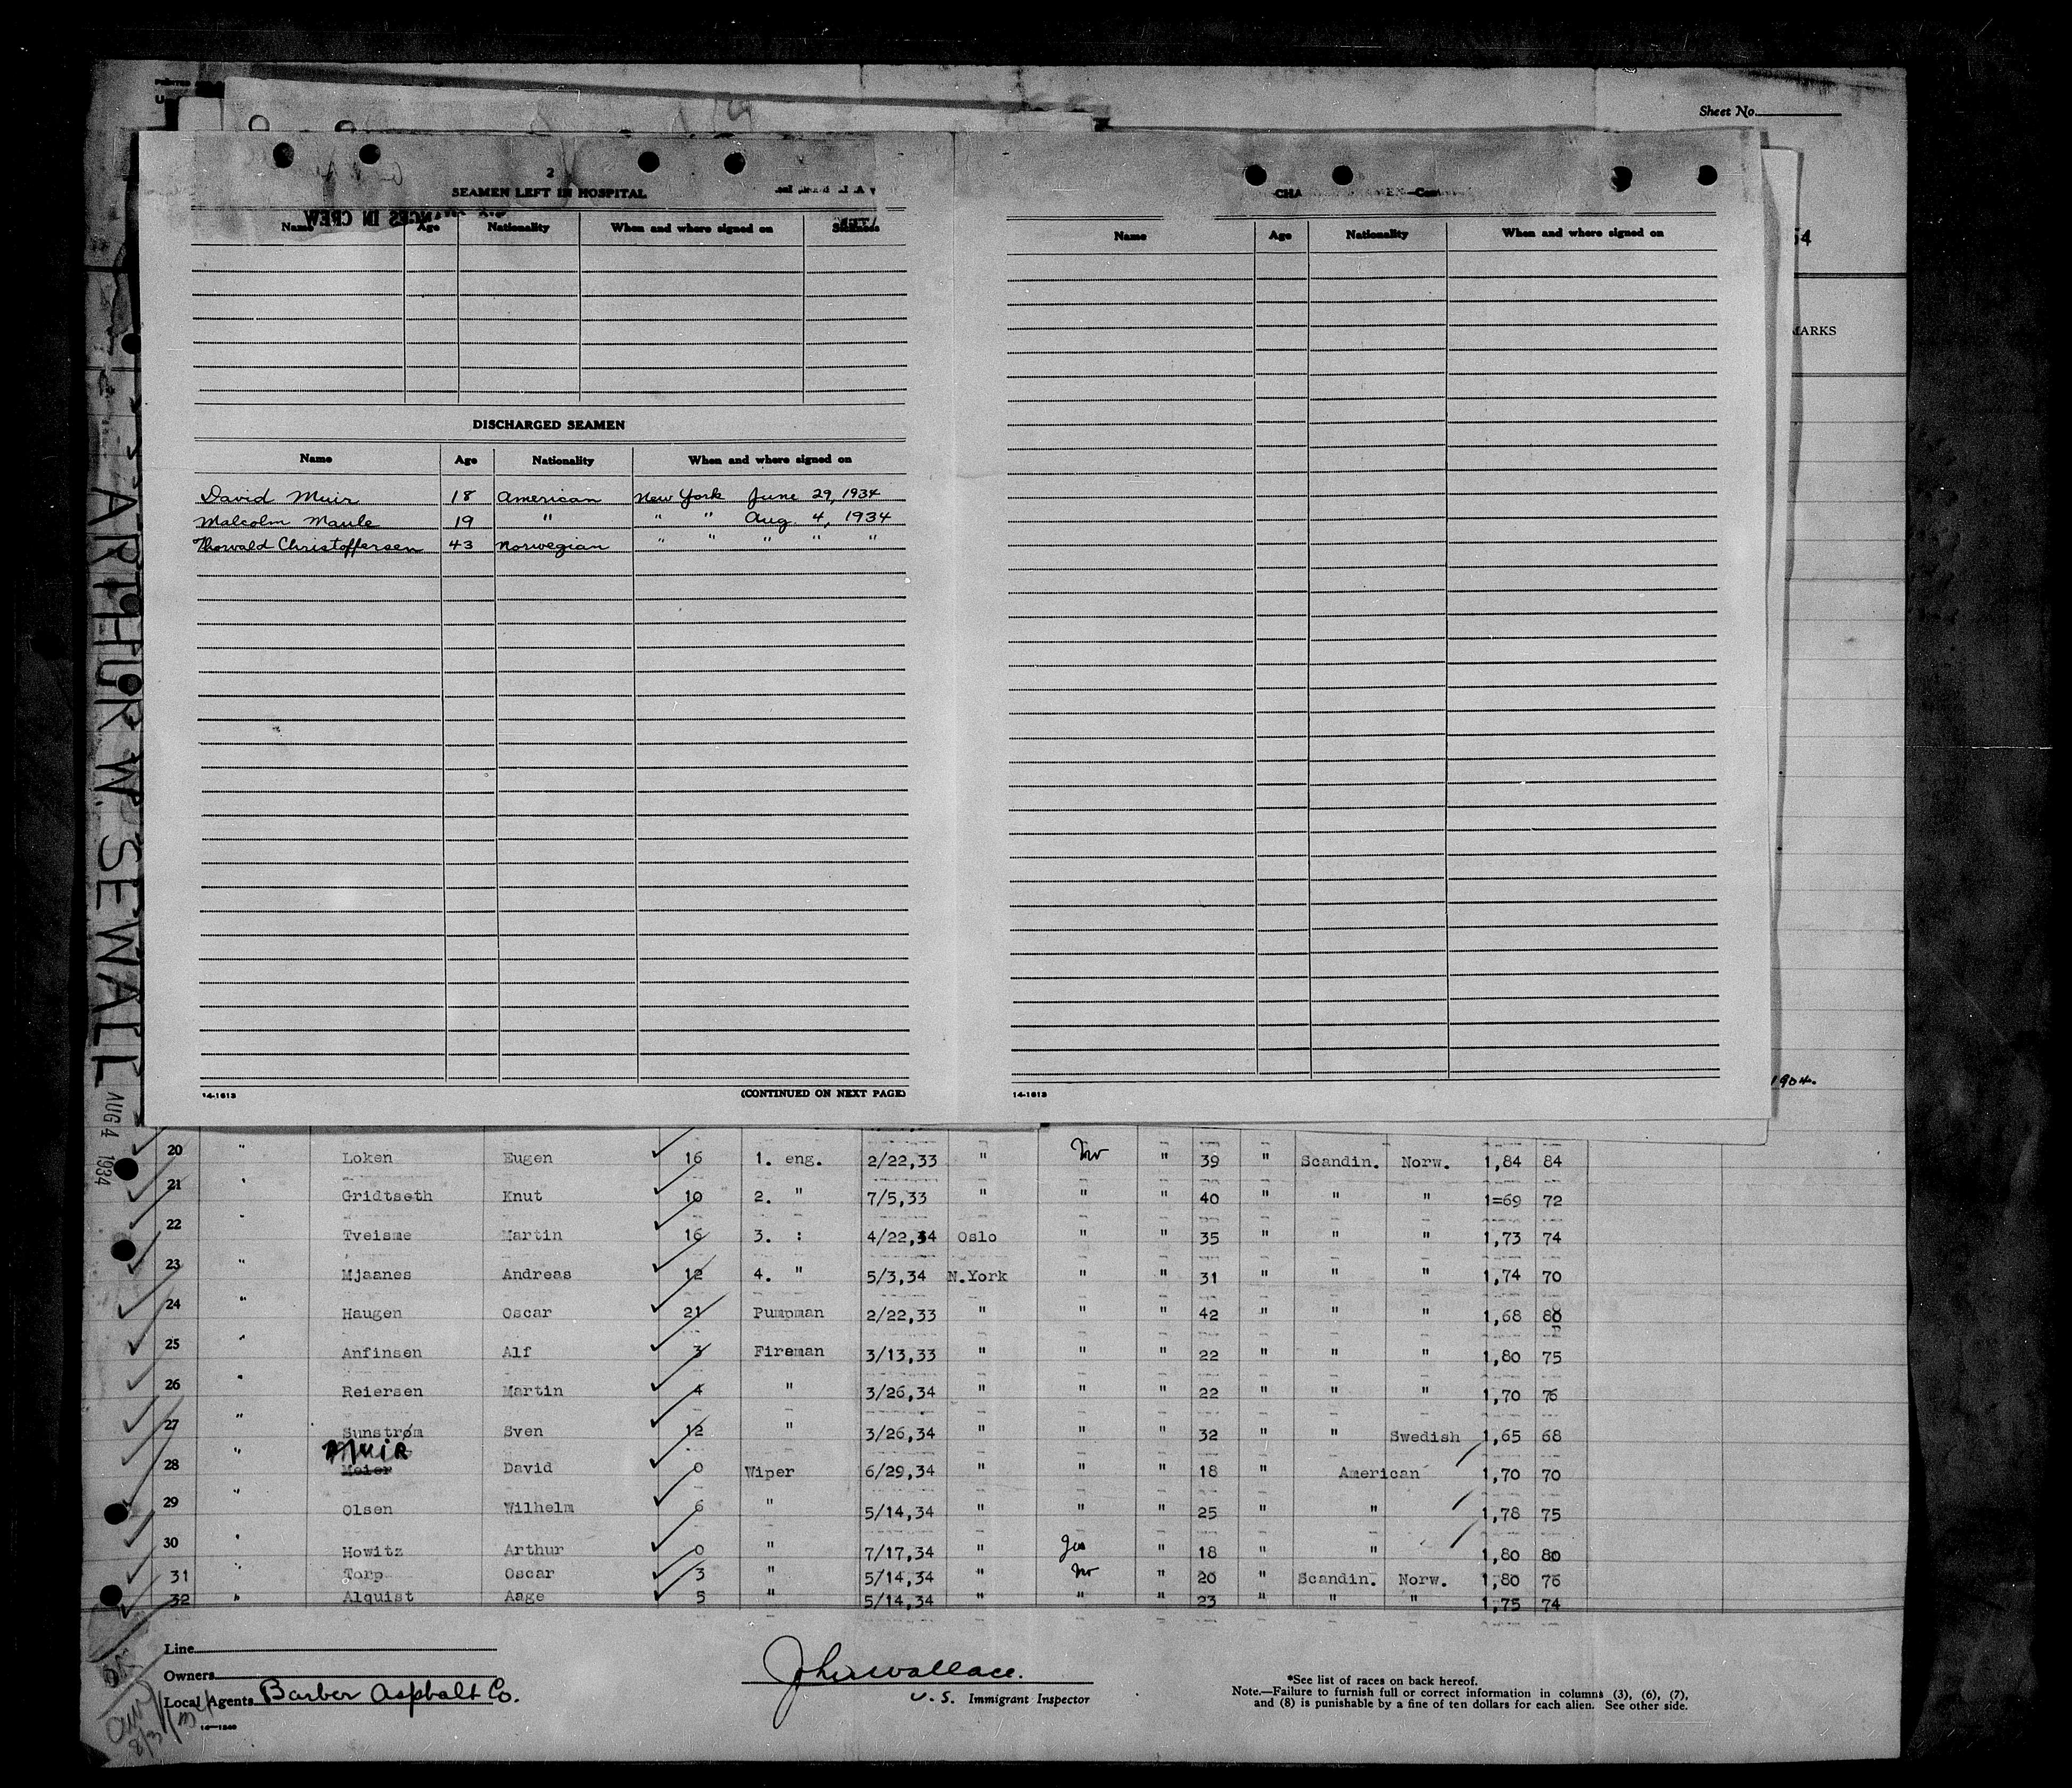 Sheet No.
2
SEAMEN LEFT IN HOSPITAL
CHANGES IN CREW
Name Age Nationality When and where signed on Sickness
DISCHARGED SEAMEN
Name Age Nationality When and where signed on
David Muir 18 American New York June 29, 1934
Malcolm Maule 19 " " " Aug. 4, 1934
Thorwald Christoffersen 43 Norwegian " " " " "
14-1613 (CONTINUED ON NEXT PAGE)
Name Age Nationality When and where signed on
14-1613
54
MARKS
1904.
ARTHUR W. SEWALL
AUG 4 1934
20 " Loken Eugen 16 1. eng. 2/22,33 " No " 39 " Scandin. Norw. 1,84 84
21 " Gridtseth Knut 10 2. " 7/5,33 " " " 40 " " " 1=69 72
22 " Tveisme Martin 16 3. : 4/22,34 Oslo " " 35 " " " 1,73 74
23 " Mjaanes Andreas 12 4. " 5/3,34 N.York " " 31 " " " 1,74 70
24 " Haugen Oscar 21 Pumpman 2/22,33 " " " 42 " " " 1,68 80
25 " Anfinsen Alf 3 Fireman 3/13,33 " " " 22 " " " 1,80 75
26 " Reiersen Martin 4 " 3/26,34 " " " 22 " " " 1,70 76
27 " Sunstrøm Sven 12 " 3/26,34 " " " 32 " " Swedish 1,65 68
MUIR
28 " Meier David 0 Wiper 6/29,34 " " " 18 " American 1,70 70
29 " Olsen Wilhelm 6 " 5/14,34 " " " 25 " " 1,78 75
30 " Howitz Arthur 0 " 7/17,34 " Yes " 18 " " 1,80 80
31 " Torp Oscar 3 " 5/14,34 " No " 20 " Scandin. Norw. 1,80 76
32 " Alquist Aage 5 " 5/14,34 " " " 23 " " " 1,75 74
Line
Owners
Local Agents Barber Asphalt Co.
14-1240
John Wallace.
U.S. Immigrant Inspector
*See list of races on back hereof.
Note.—Failure to furnish full or correct information in columns (3), (6), (7),
and (8) is punishable by a fine of ten dollars for each alien. See other side.